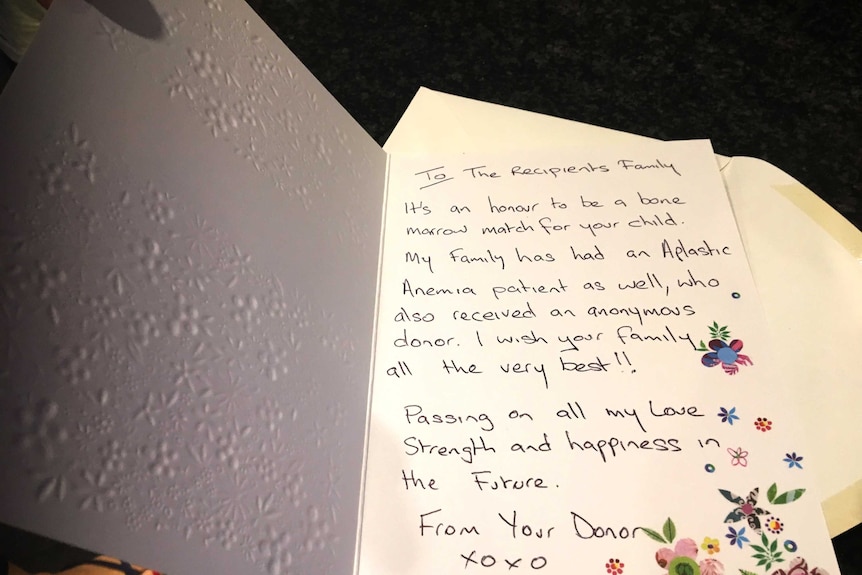 To The Recipients Family
It's an honour to be a bone
marrow match for your child.
My Family has had an Aplastic
Anemia patient as well, who
also received an anonymous
donor. I wish your family
all the very best!!
Passing on all my Love
Strength and happiness in
the Future.
From Your Donor
xoxo